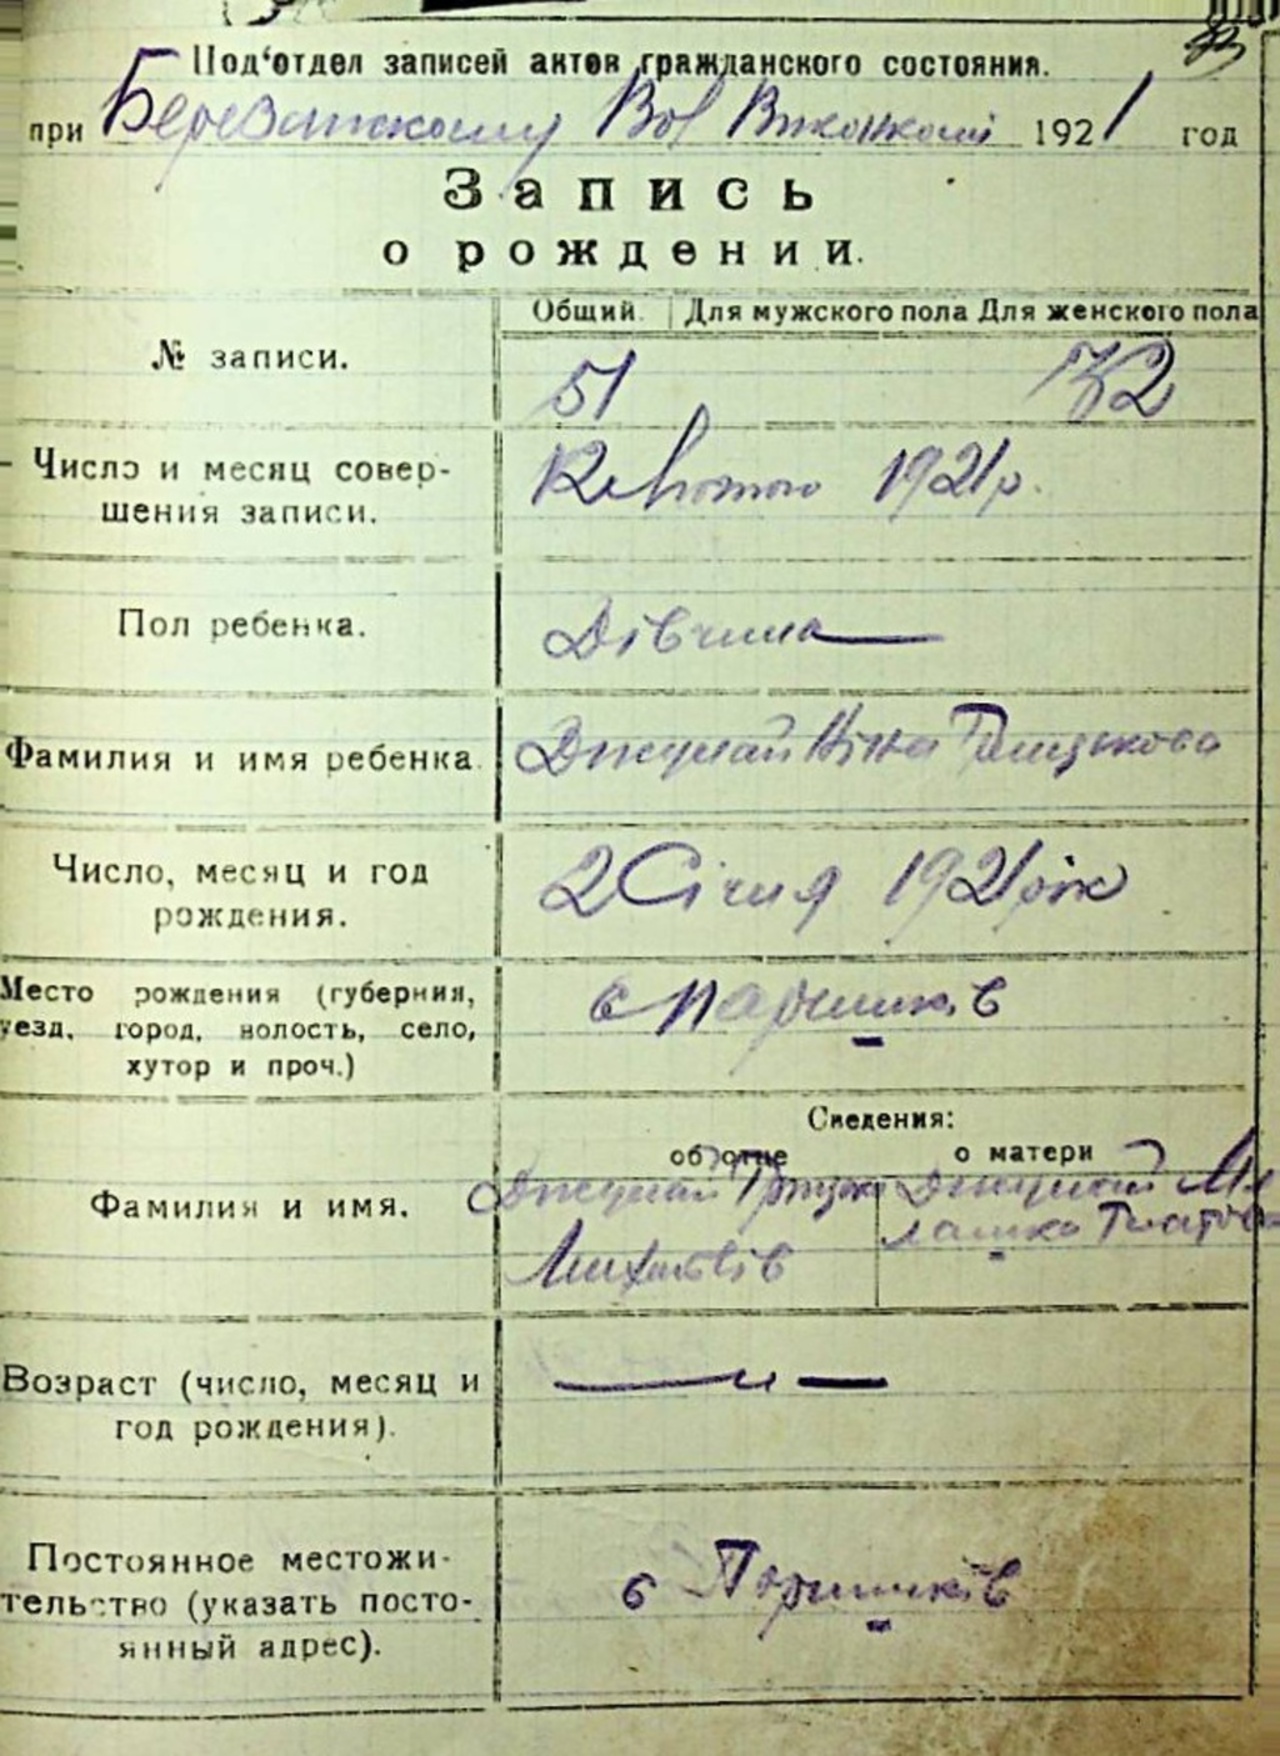 Под‘отдел записей актов гражданского состояния.
при Березанскому Вол Виконкомі 1921 год
Запись
о рождении.
Общий. Для мужского пола Для женского пола
№ записи.
51
Число и месяц совер-
шения записи.
12 Лютого 1921 р.
Пол ребенка.
Дівчина
Фамилия и имя ребенка.
Джулай Ніна Грицькова
Число, месяц и год
рождения.
2 Січня 1921 рік
Место рождения (губерния,
уезд, город, волость, село,
хутор и проч.)
с Паришків
Сведения:
об отце о матери
Фамилия и имя.
Джулай Грицко
Михайлів
Джулай Ма
лашка
Возраст (число, месяц и
год рождения).
Постоянное местожи-
тельство (указать посто-
янный адрес).
с Паришків